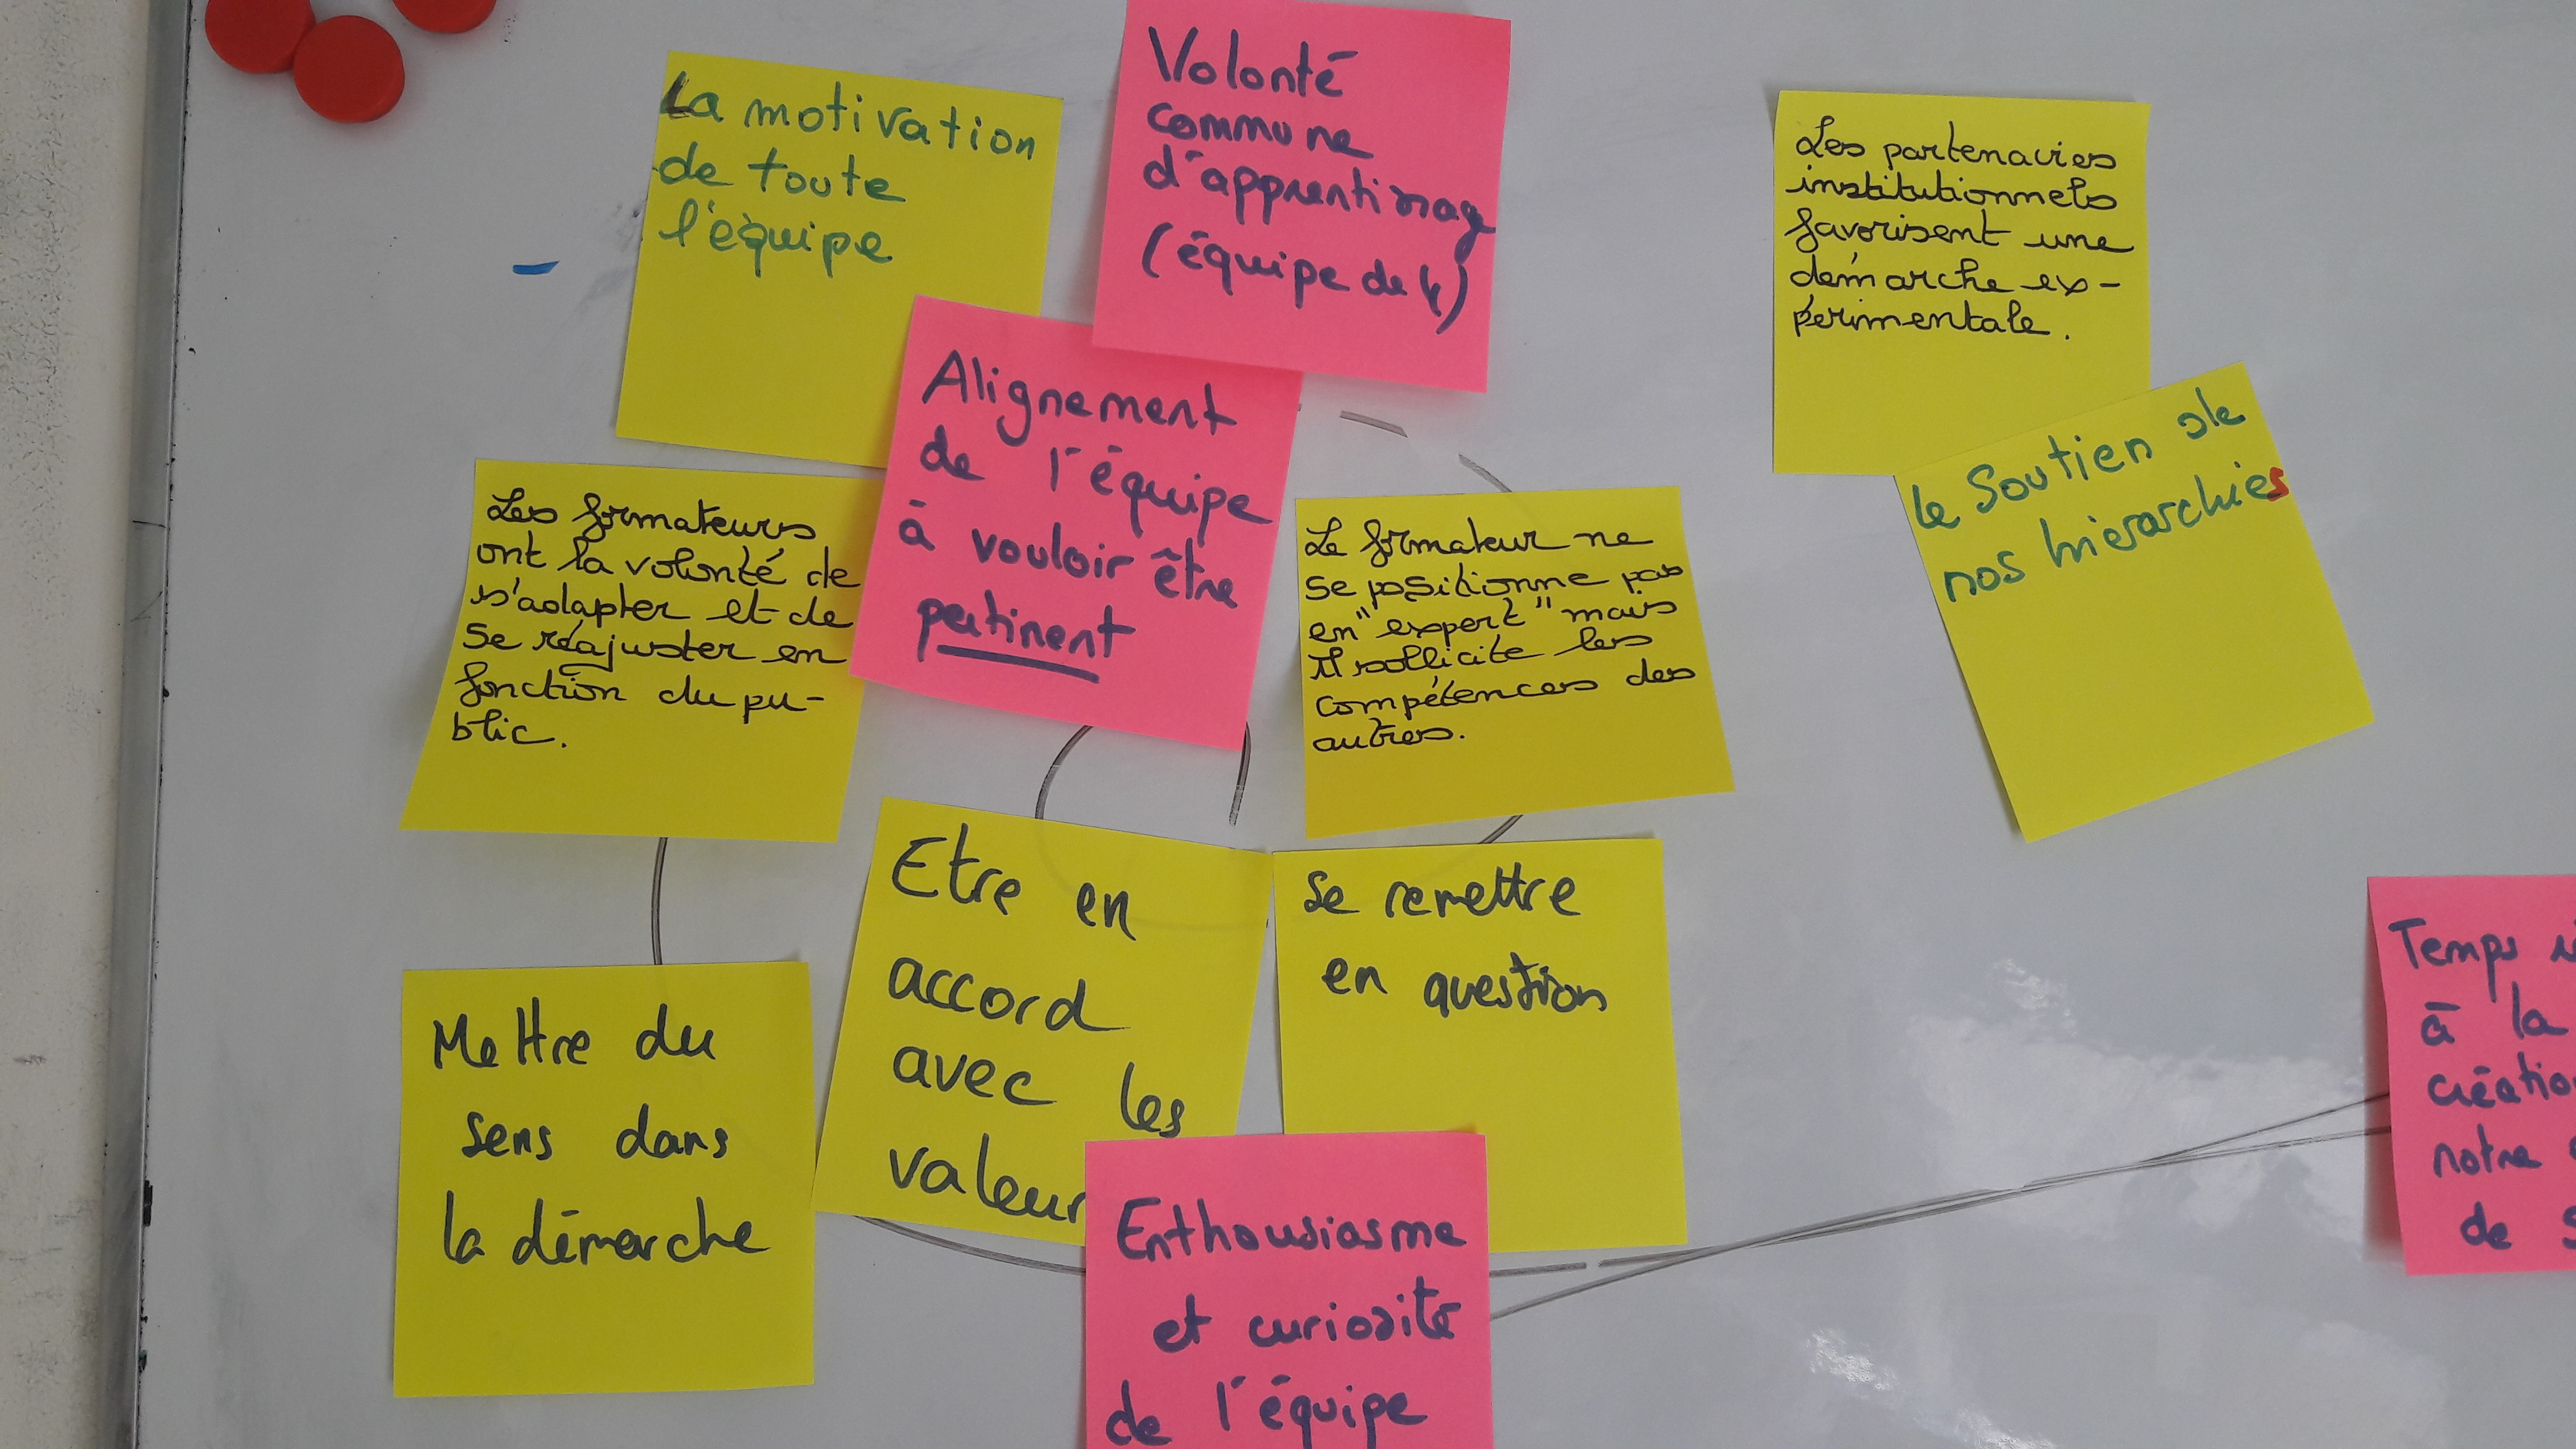 La motivation
de toute
l'équipe
Volonté
commune
d'apprentissage
(équipe de 4)
Les partenaires
institutionnels
favorisent une
démarche ex-
périmentale.
Le Soutien de
nos hierarchies
Alignement
de l'équipe
à vouloir être
pertinent
Les formateurs
ont la volonté de
s'adapter et de
se réajuster en
fonction du pu-
blic.
Le formateur ne
se positionne pas
en "expert" mais
il sollicite les
compétences des
autres.
Etre en
accord
avec les
valeur
Se remettre
en question
Mettre du
sens dans
la démarche
Enthousiasme
et curiosité
de l'équipe
Temps
à la
créatio
notre
de